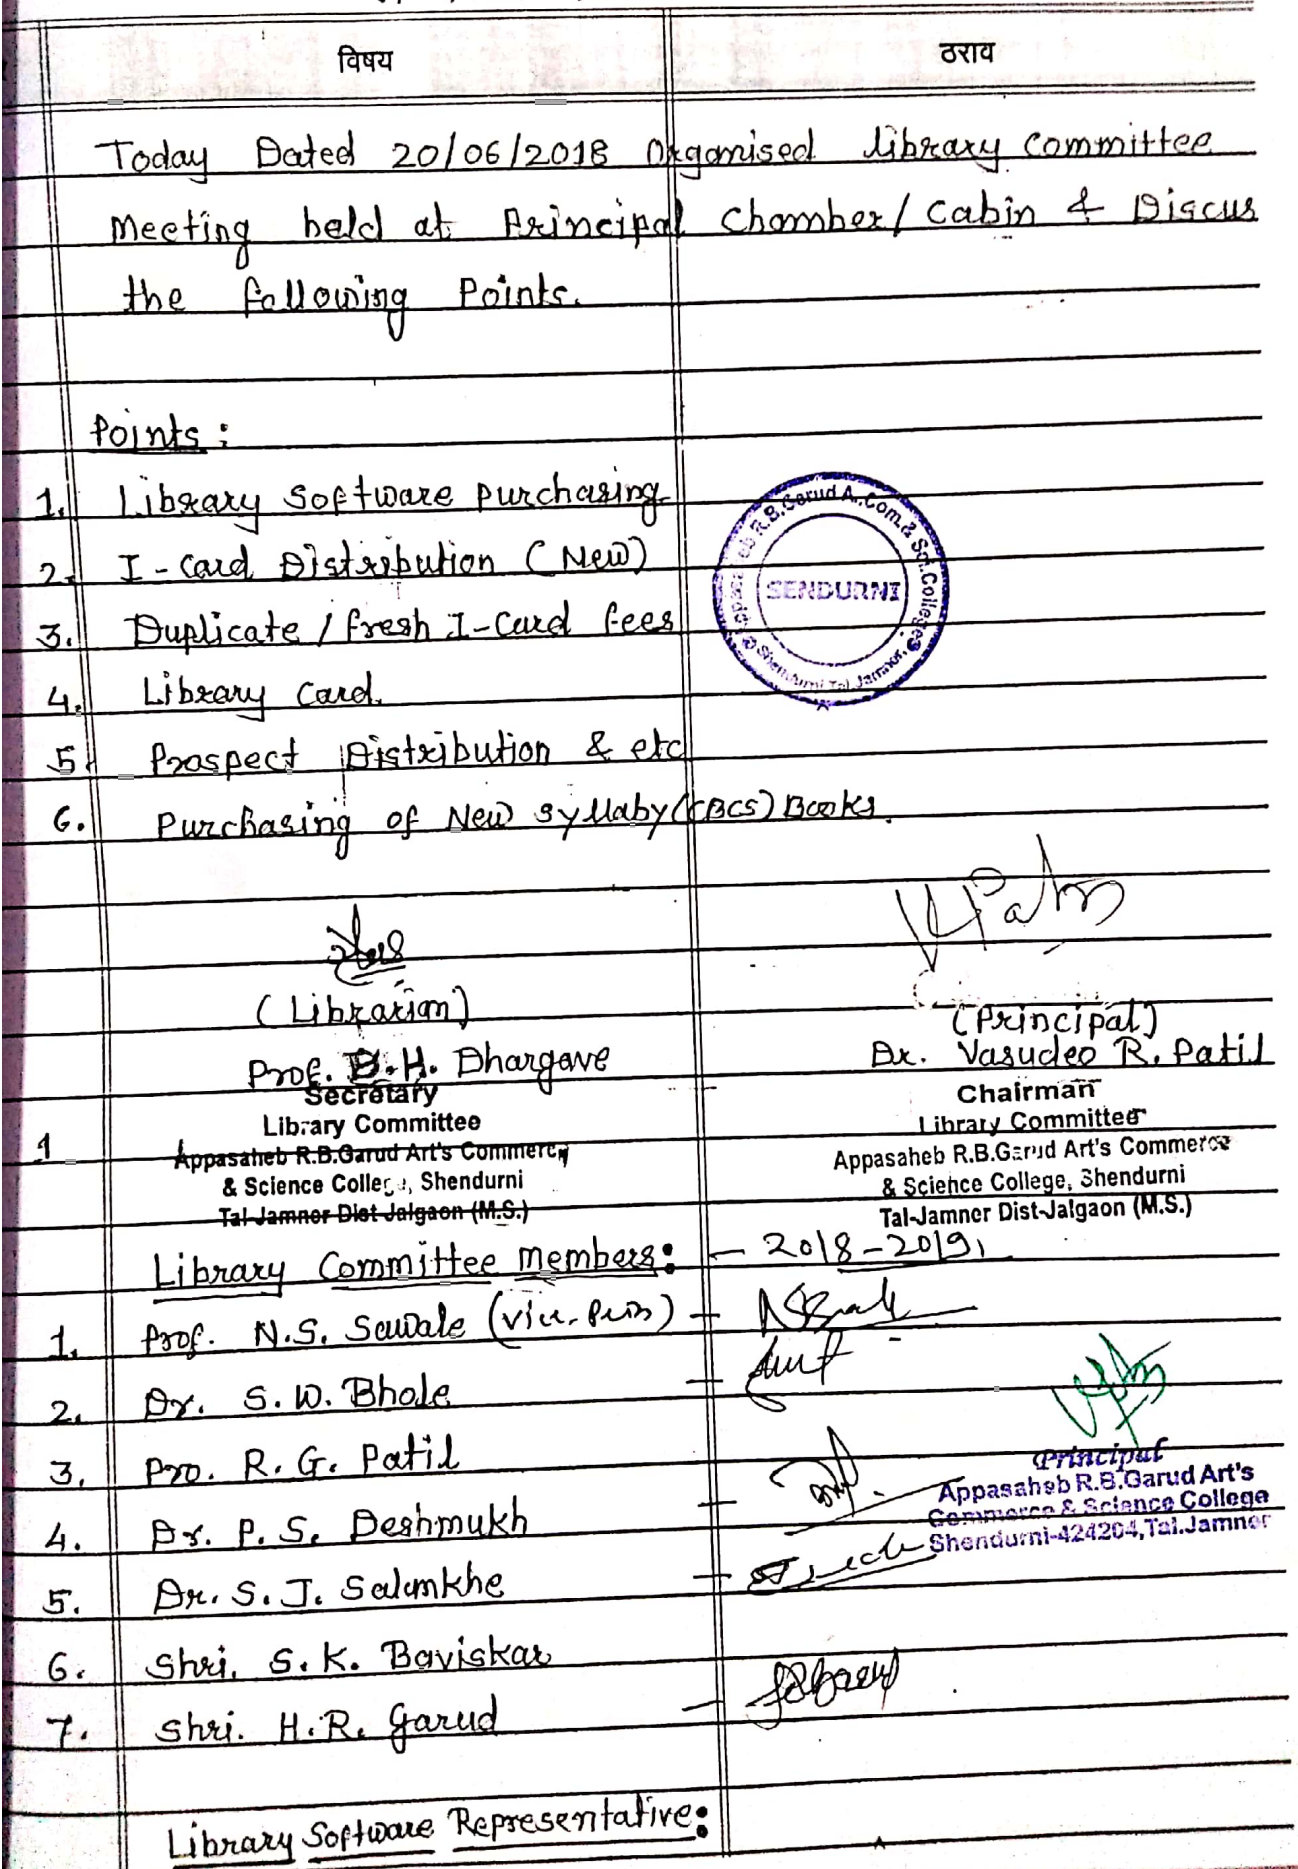 विषय
ठराव
Today Dated 20/06/2018 Organised library committee
Meeting held at Principal Chamber/ Cabin & Discus
the following Points.
Points :
1. Library Software purchasing
2. I - Card Distribution (New)
3. Duplicate / fresh I-Card fees
4. Library Card.
5. Prospect Distribution & etc
6. Purchasing of New Syllaby (CBCS) Books.
SENDURNI
(Librarian)
Prof. D.H. Dhargave
Secretary
Library Committee
Appasaheb R.B.Garud Art's Commerce
& Science College, Shendurni
Tal-Jamner Dist-Jalgaon (M.S.)
(Principal)
Dr. Vasudeo R. Patil
Chairman
Library Committee
Appasaheb R.B.Garud Art's Commerce
& Science College, Shendurni
Tal-Jamner Dist-Jalgaon (M.S.)
1
Library Committee members: - 2018-2019
1. Prof. N.S. Sawale (Vice-Prin) -
2. Dr. S. W. Bhole -
3. Pro. R. G. Patil
4. Dr. P. S. Deshmukh -
5. Dr. S. J. Salunkhe -
6. Shri. S. K. Baviskar
7. Shri. H. R. Garud -
Principal
Appasaheb R.B.Garud Art's
Commerce & Science College
Shendurni-424204,Tal.Jamner
Library Software Representative: